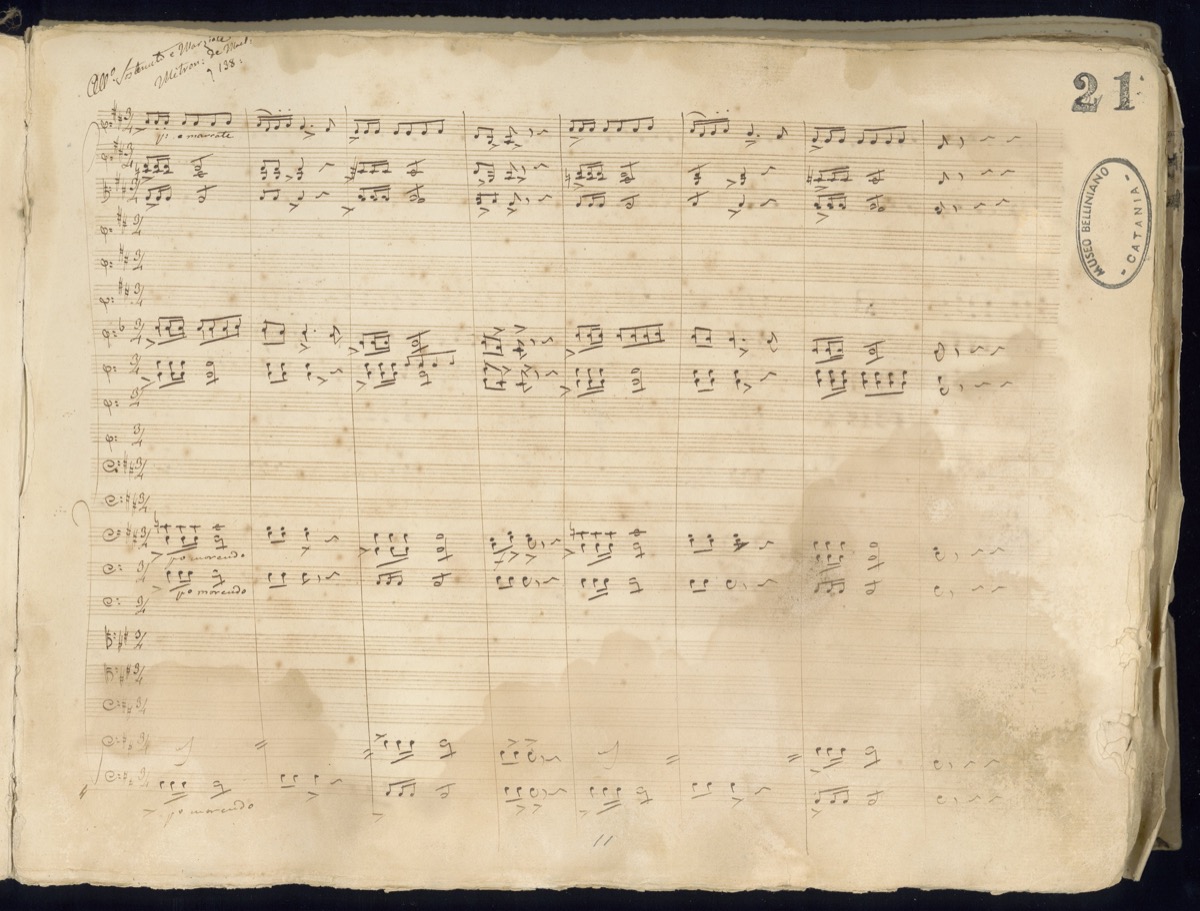 All.º Sostenuto e Marziale
Metron: de Mael:
138:
21
MUSEO BELLINIANO
- CATANIA -
pº e marcate
po morendo
po morendo
po morendo
11